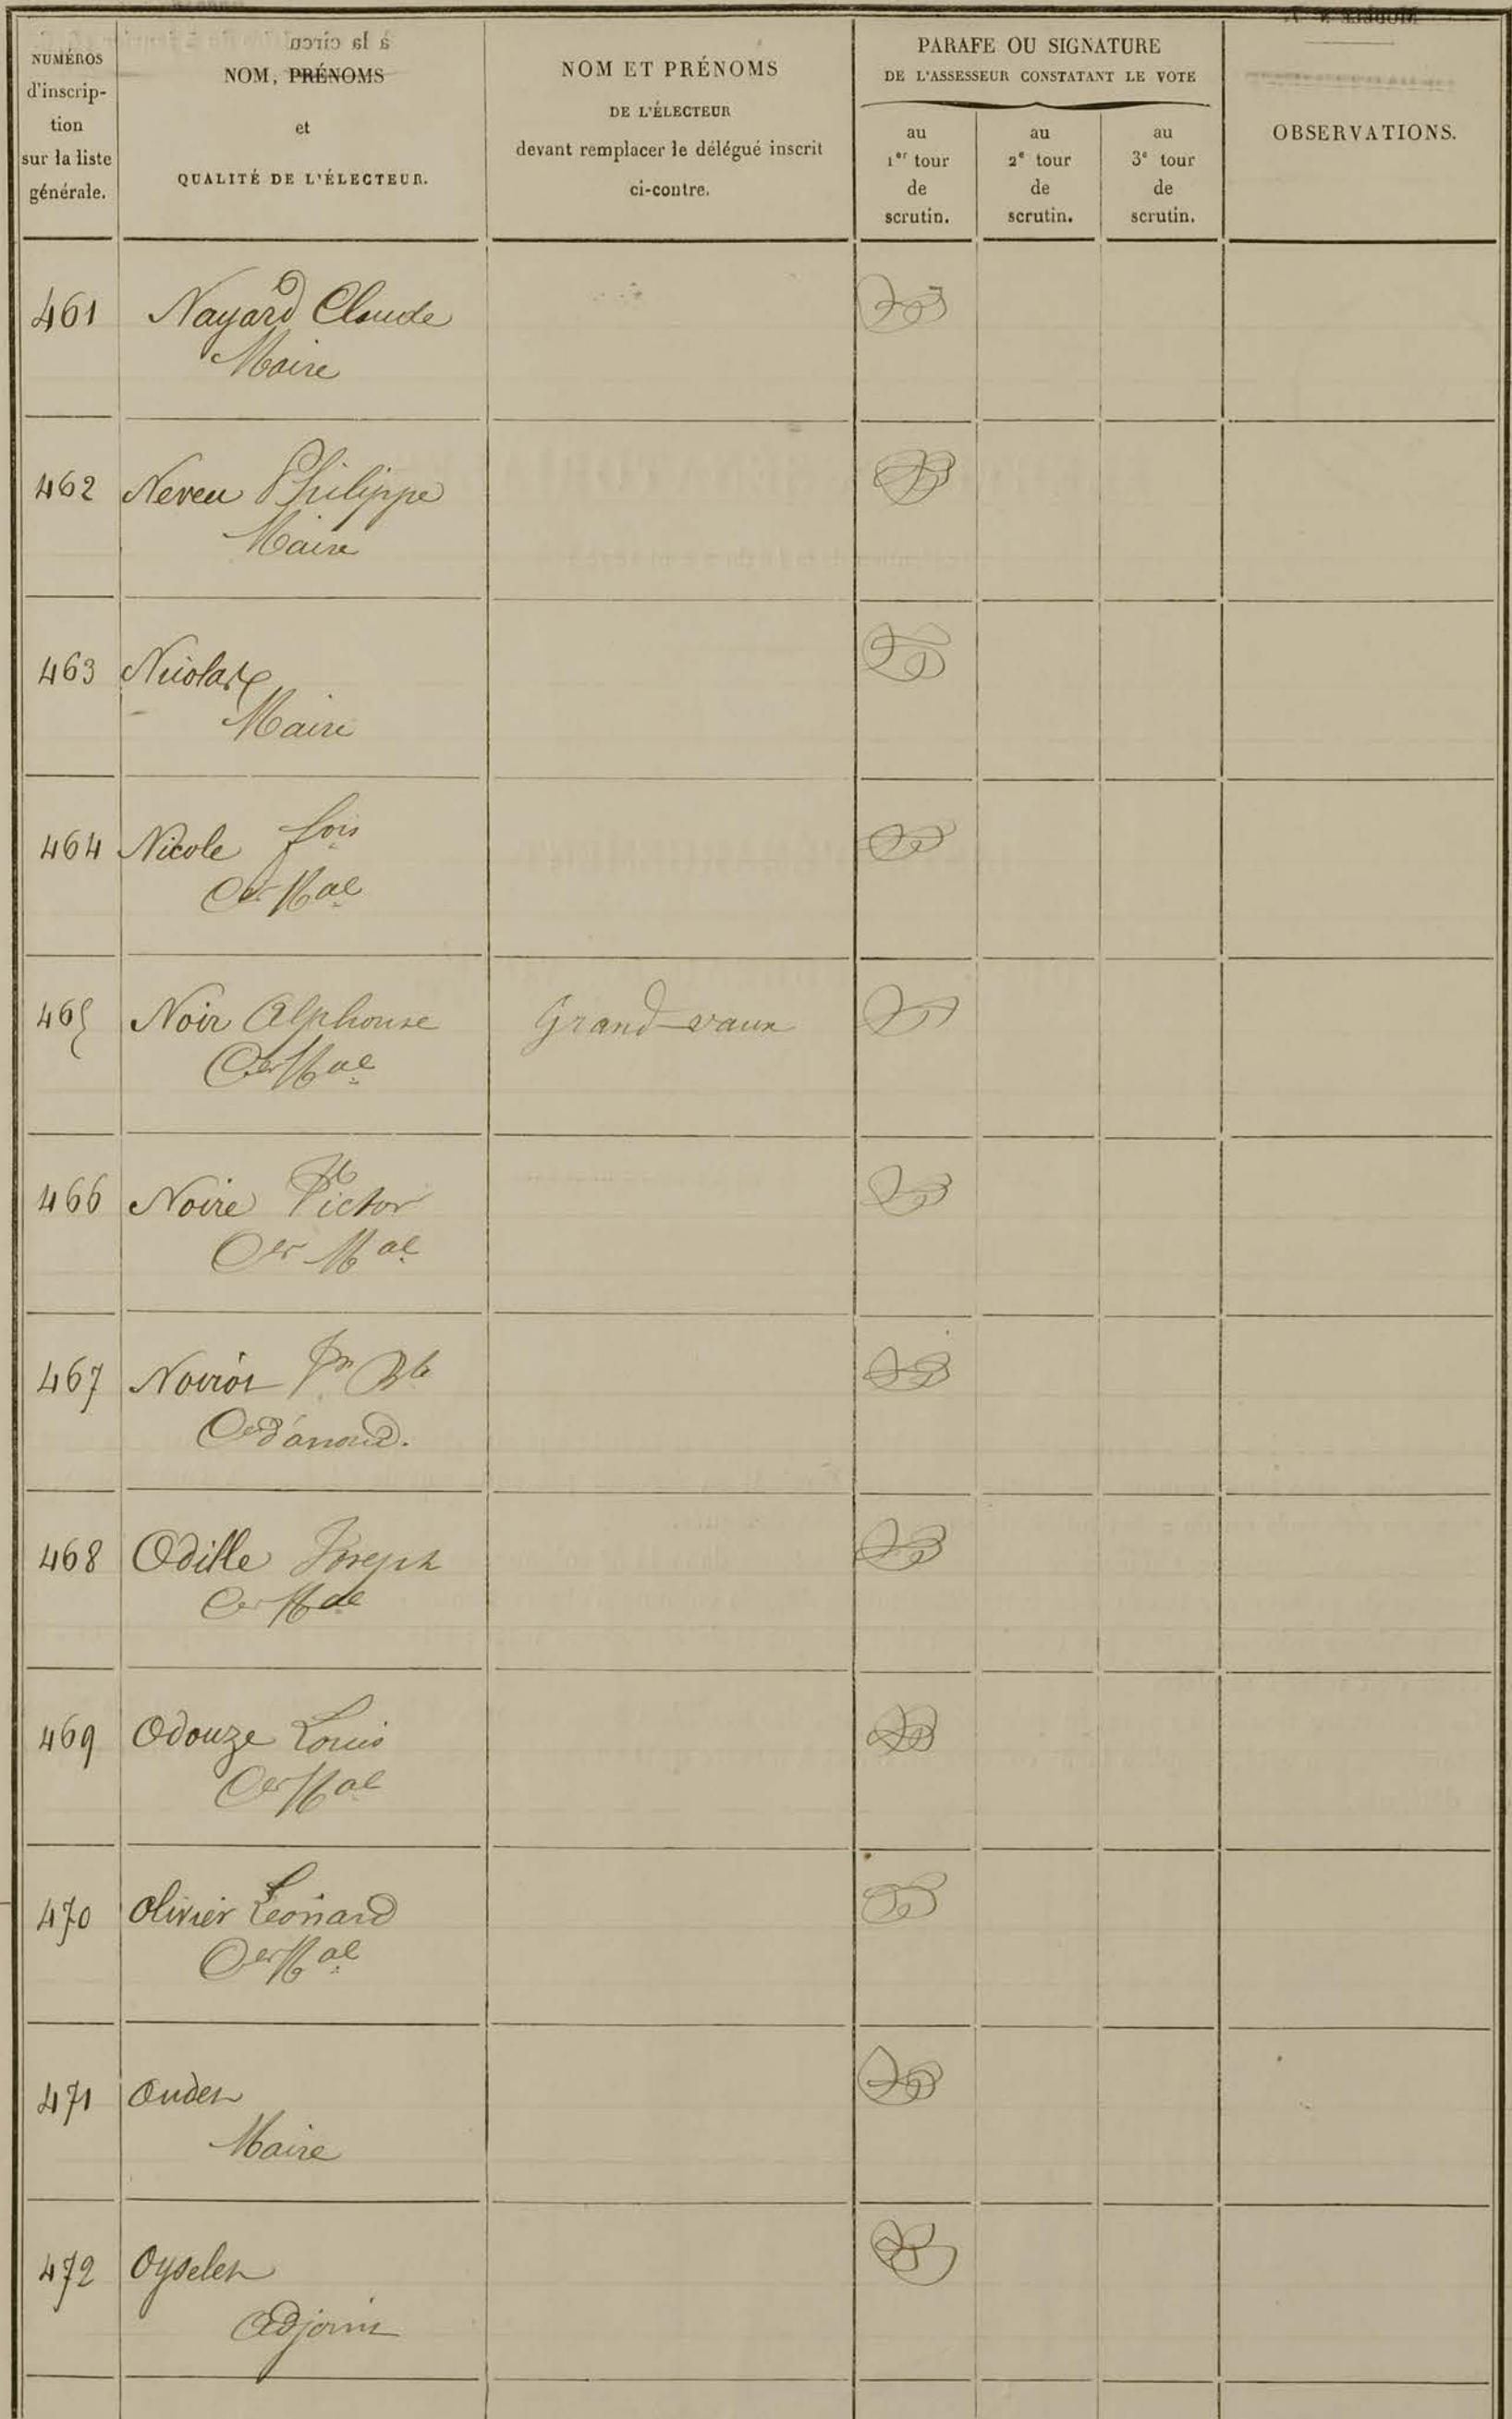 NUMÉROS
d'inscrip-
tion
sur la liste
générale.
NOM, PRÉNOMS
et
QUALITÉ DE L'ÉLECTEUR.
NOM ET PRÉNOMS
DE L'ÉLECTEUR
devant remplacer le délégué inscrit
ci-contre.
PARAFE OU SIGNATURE
DE L'ASSESSEUR CONSTATANT LE VOTE
au
1er tour
de
scrutin.
au
2e tour
de
scrutin.
au
3e tour
de
scrutin.
OBSERVATIONS.
461 Nayard Claude
Maire
462 Neveu Philippe
Maire
463 Nicolas
Maire
464 Nicole fois
Cer Mal
465 Noir Alphonse Grand-vaux
Cer Mal
466 Noire Victor
Cer Mal
467 Noirot Jn Bte
Cer d'arrond.
468 Odille Joseph
Cer Mal
469 Odouze Louis
Cer Mal
470 Olivier Léonard
Cer Mal
471 Oudet
Maire
472 Oyselet
Adjoint